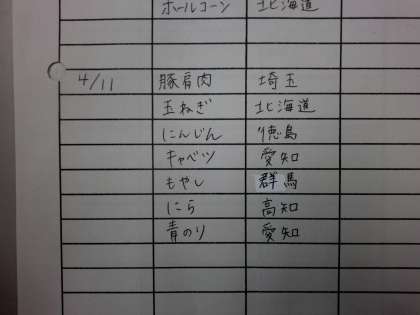 ホールコーン 北海道
4/11 豚肩肉 埼玉
玉ねぎ 北海道
にんじん 徳島
キャベツ 愛知
もやし 群馬
にら 高知
青のり 愛知